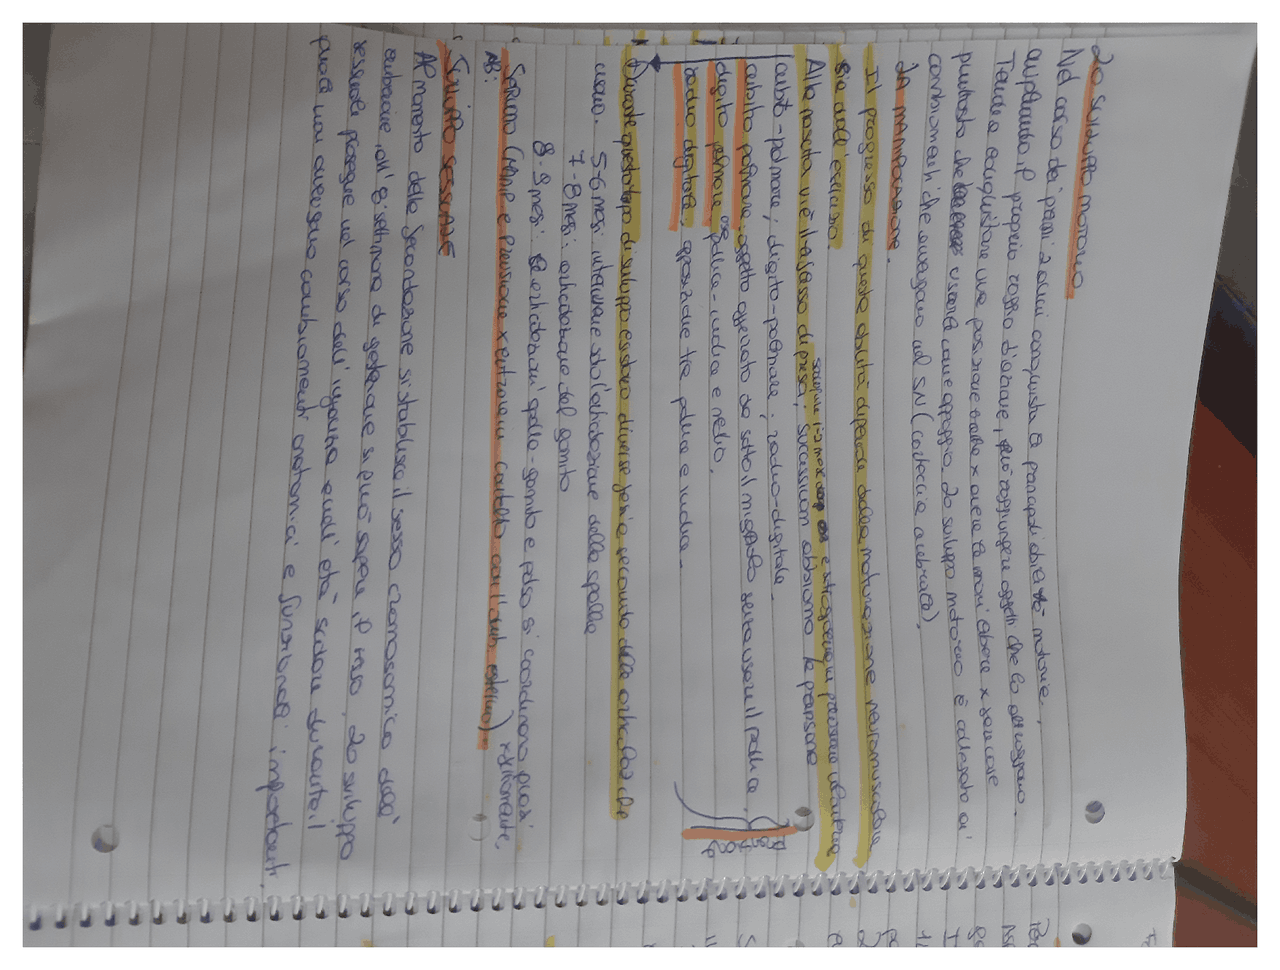 LO SVILUPPO MOTORIO
Nel corso dei primi 2 anni conquista le principali abilità motorie,
ampliando il proprio raggio d'azione, può raggiungere oggetti che lo attraggono.
Tende a conquistare una posizione eretta x avere le mani libere x giocare
piuttosto che usarle come appoggio. Lo sviluppo motorio è collegato ai
cambiamenti che avvengono nel SN (corteccia cerebrale).
LA MANIPOLAZIONE.
Il progresso di queste abilità dipende dalla maturazione neuromuscolare
sia dall'esercizio.
Alla nascita vi è il riflesso di presa, scompare e la prensione volontaria
successivam abbiamo la prensione
cubito-palmare; digito-palmare; radio-digitale.
cubito palmare: oggetto afferrato da sotto il mignolo senza usare il pollice.
digito palmare: pollice-indice e medio.
radio digitale: opposizione tra pollice e indice.
Durante questo tipo di sviluppo esistono diverse fasi a seconda delle articolaz che
usano. 5-6 mesi: interviene solo l'articolazione della spalla
7-8 mesi: articolazione del gomito
8-9 mesi: articolazioni spalla-gomito e polso si coordinano quasi
SERVONO (MANI e Prensione x entrare in contatto con l'amb. esterno).
AB:
SVILUPPO SESSUALE
Al momento della fecondazione si stabilisce il sesso cromosomico dell'
embrione, all'8 settimana di gestazione si può sapere il sesso. Lo sviluppo
sessuale prosegue nel corso dell'infanzia e nell'età-scolare durante il
quale non avvengono cambiamenti anatomici e funzionali importanti.